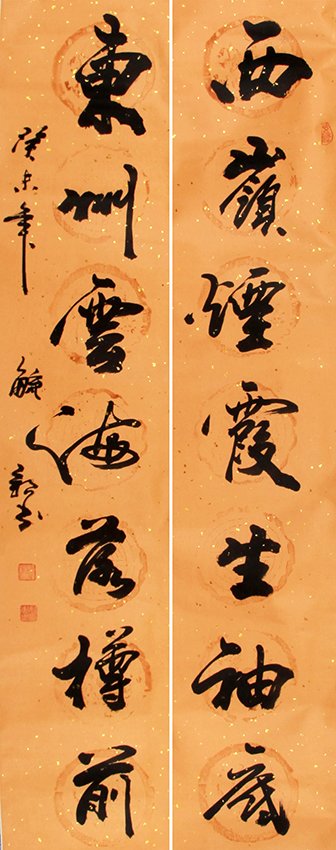 西嶺煙霞生袖底
東洲雲海落樽前
癸未年